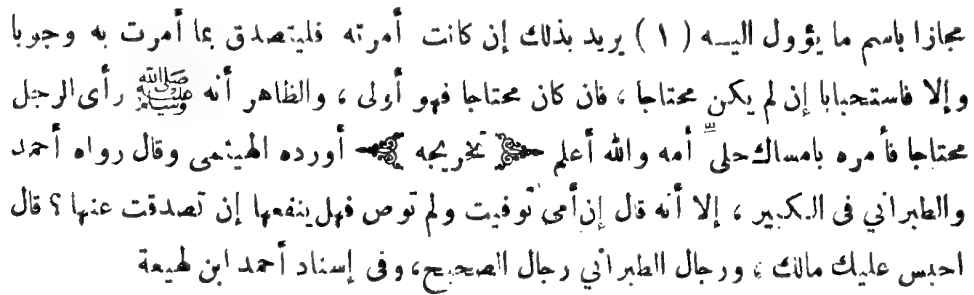 مجازا باسم ما يؤول اليــه ( ١ ) يريد بذلك إن كانت أمرته فليتصدق بما أمرت به وجوبا
وإلا فاستحبابا إن لم يكن محتاجا ، فان كان محتاجا فهو أولى ، والظاهر أنه ﷺ رأى الرجل
محتاجا فأمره بامساك حلىّ أمه والله أعلم ﴿ تخريجه ﴾ أورده الهيثمى وقال رواه أحمد
والطبرانى فى الكبير ، إلا أنه قال إن أمى توفيت ولم توص فهل ينفعها إن تصدقت عنها ؟ قال
احبس عليك مالك ، ورجال الطبرانى رجال الصحيح، وفى إسناد أحمد ابن لهيعة